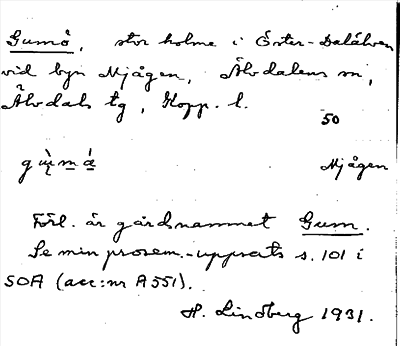 Gumö, stor holme i Öster-Dalälven
vid byn Mjågen, Älvdalens sn,
Älvdals tg, Kopp. l.
50
Mjågen
Förl. är gårdnamnet Gum.
Se min prosem.-uppsats s. 101 i
SOA (acc:nr A551).
H. Lindberg 1931.